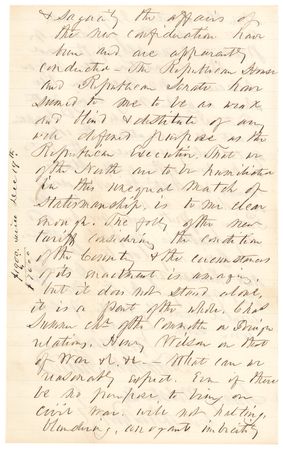 & sagacity the affairs of
the new confederation have
been and are apparently
conducted - The Republican House
and Republican Senate have
seemed to me to be as weak
and blind & destitute of any
well defined purpose as the
Republican Executive. That we
of the North are to be humiliated
in this unequal match of
Statesmanship is to me clear
enough. The folly of the new
tariff considering the condition
of the Country & the circumstances
of its enactment is amazing,
but it does not stand alone,
it is a part of the whole. Chas
Sumner Ch of the Committee on Foreign
relations, Henry Wilson on that
of War &c. &c. - What can we
reasonably expect. Even if there
be no purpose to bring on
civil war, will not halting,
blundering, arrogant imbecility